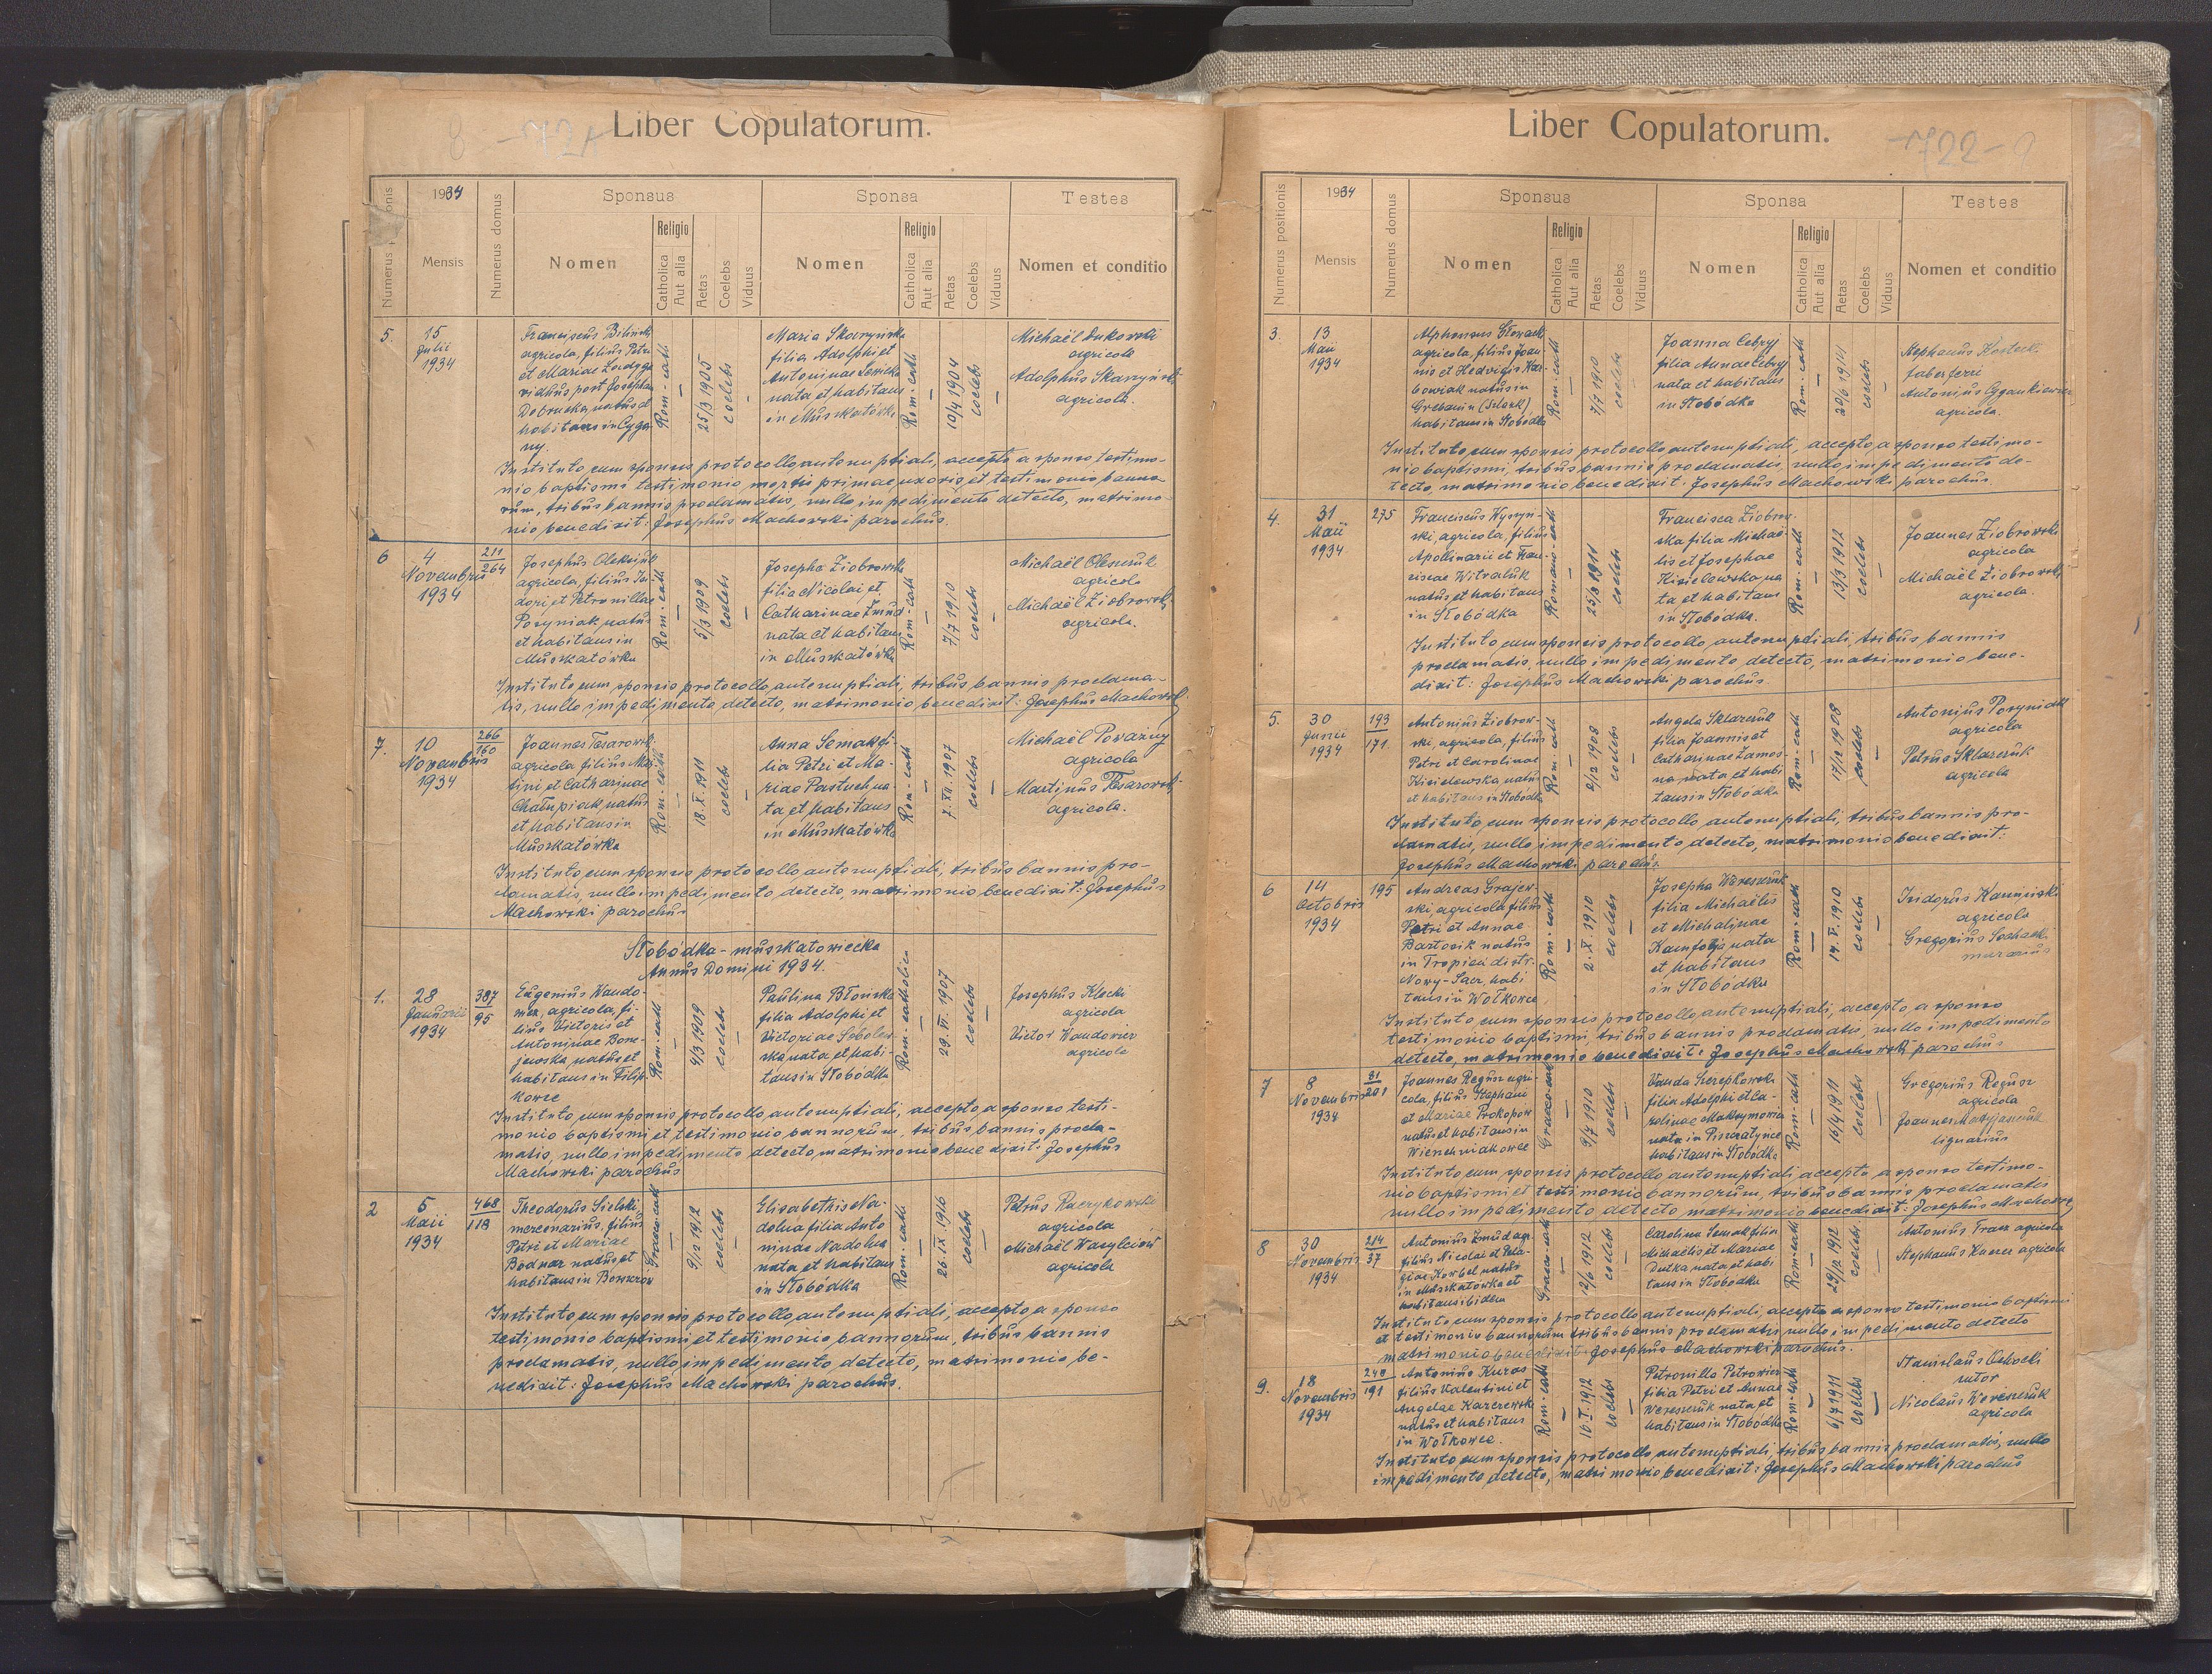 Liber Copulatorum.
1934
Mensis
Numerus domus
Sponsus
Nomen
Religio
Catholica
Aut alia
Aetas
Coelebs
Viduus
Sponsa
Nomen
Religio
Catholica
Aut alia
Aetas
Coelebs
Viduus
Testes
Nomen et conditio
5.
15
Julii
1934
Franciscus Biliński
agricola, filius Petri
et Mariae
viduus post Josepham
natus et
habitans in Cyga
ny.
Rom-cath
—
25/3 1905
coelebs
—
Maria Skarzyńska
filia Adolphi et
Antoninae
nata et habitans
in Muszkatówka
Rom-cath
—
10/4 1904
coelebs
—
Michaël Dukowski
agricola
Adolphus Skarzyński
agricola.
Instituto cum sponsis protocollo antenuptiali, accepto a sponso testimo-
nio baptismi testimonio mortis primae uxoris et testimonio banno-
rum, tribus bannis proclamatis, nullo impedimento detecto, matrimo-
nio benedixit: Josephus Machowski parochus.
6
4
Novembris
1934
211
264
Josephus Oleksiuk
agricola, filius Isi-
dori et Petronillae
Posyniak natus
et habitans in
Muszkatówka
Rom-cath
—
5/3 1909
coelebs
—
Josepha Ziobrowska
filia Nicolai et
Catharinae Żmud
nata et habitans
in Muszkatówka
Rom-cath
—
7/7 1910
coelebs
—
Michaël
agricola
Michaël Ziobrowski
agricola.
Instituto cum sponsis protocollo antenuptiali, tribus bannis proclama-
tis, nullo impedimento detecto, matrimonio benedixit: Josephus Machowski
7.
10
Novembris
1934
266
160
Joannes Tesarowski
agricola filius Mar-
tini et Catharinae
Chałupiak natus
et habitans in
Muszkatówka
Rom-cath
—
18.X.1911
coelebs
—
Anna Semak fi-
lia Petri et Ma-
riae Pastuch na-
ta et habitans
in Muszkatówka
Rom-cath
—
7.XII.1907
coelebs
—
Michaël Poważny
agricola
Martinus Tesarowski
agricola.
Instituto cum sponsis protocollo antenuptiali, tribus bannis pro-
clamatis, nullo impedimento detecto, matrimonio benedixit: Josephus
Machowski parochus
Słobódka-muszkatowiecka
Annus Domini 1934.
1.
28
Januarii
1934
387
95
Eugenius Wando-
wicz, agricola, fi-
lius Victoris et
Antoninae
natus et
habitans in Filip-
kowce
Rom-cath
—
4/3 1909
coelebs
—
Paulina Błońska
filia Adolphi et
Victoriae Sobolew-
ska nata et habi-
tans in Słobódka
Rom-catholica
—
29.VI.1907
coelebs
—
Josephus Klecki
agricola
Victor Wandowicz
agricola
Instituto cum sponsis protocollo antenuptiali, accepto, a sponso testi-
monio baptismi et testimonio bannorum, tribus bannis procla-
matis, nullo impedimento detecto, matrimonio benedixit: Josephus
Machowski parochus
2
5
Maii
1934
468
118
Theodorus Sielski
mercenarius, filius
Petri et Mariae
Bodnar natus et
habitans in
Graeco-cath
—
9/12 1912
coelebs
—
Elisabethis Na-
dolna filia Anto
ninae Nadolna
nata et habitans
in Słobódka
Rom-cath
—
26.IX.1916
coelebs
—
Petrus
agricola
Michaël Wasylciów
agricola
Instituto cum sponsis protocollo antenuptiali, accepto a sponso
testimonio baptismi et testimonio bannorum, tribus bannis
proclamatis, nullo impedimento detecto, matrimonio be-
nedixit: Josephus Machowski parochus.
Liber Copulatorum.
-722-
Numerus positionis
1934
Mensis
Numerus domus
Sponsus
Nomen
Religio
Catholica
Aut alia
Aetas
Coelebs
Viduus
Sponsa
Nomen
Religio
Catholica
Aut alia
Aetas
Coelebs
Viduus
Testes
Nomen et conditio
3.
13
Maii
1934
Alphonsus Słowacki
agricola, filius Joan-
nis et Hedvigis
natus in
habitans in Słobódka
Rom-cath
—
7/7 1910
coelebs
Joanna Cebryj
filia Annae Cebryj
nata et habitans
in Słobódka
Rom-cath
—
20/6 1914
coelebs
—
Stephanus Kostecki
faber ferri
Antonius Cygankiewicz
agricola.
Instituto cum sponsis protocollo antenuptiali, accepto, a sponso testimo-
nio baptismi, tribus bannis proclamatis, nullo impedimento de-
tecto, matrimonio benedixit: Josephus Machowski parochus.
4.
31
Maii
1934
275
Franciscus Wyszyń-
ski, agricola, filius
Apollinarii et Fran-
ciscae Witraluk
natus et habitans
in Słobódka
Romano-cath
—
25/8 1911
coelebs
Francisca Ziobrow-
ska filia Michaë-
lis et Josephae
Kisielewska na
ta et habitans
in Słobódka.
Rom-cath
—
13/3 1912
coelebs
—
Joannes Ziobrowski
agricola
Michaël Ziobrowski
agricola.
Instituto cum sponsis protocollo antenuptiali, tribus bannis
proclamatis, nullo impedimento detecto, matrimonio bene-
dixit: Josephus Machowski parochus.
5.
30
Junii
1934
193
171.
Antonius Ziobrow-
ski, agricola, filius
Petri et Carolinae
Kisielewska, natus
et habitans in Słobódka
Rom-cath
—
2/12 1908
coelebs
—
Angela Sklarczuk
filia Joannis et
Catharinae Zamos-
na nata et habi
tans in Słobódka
Rom-cath
—
17/12 1908
coelebs
—
Antonius Posyniak
agricola
Petrus Sklarczuk
agricola
Instituto, cum sponsis protocollo antenuptiali, tribus bannis pro-
clamatis, nullo impedimento, detecto, matrimonio benedixit:
Josephus Machowski parochus
6
14
Octobris
1934
195
Andreas Grajew-
ski, agricola filius
Petri et Annae
Bartosik natus
in Tropień distr.
Nowy-Sącz, habi
tans in Wołkowce
Rom-cath
—
2.X.1910
coelebs
—
Josepha Wereszczuk
filia Michaëlis
et Michalinae
nata
et habitans
in Słobódka
Rom-cath
—
14.V.1910
coelebs
—
Isidorus Kamiński
agricola
Gregorius Sochacki
murarius
Instituto cum sponsis protocollo antenuptiali, accepto, a sponso
testimonio baptismi, tribus bannis proclamatis, nullo impedimento
detecto, matrimonio benedixit: Josephus Machowski parochus
7
8
Novembris
1934
81
201
Joannes Regusz agri-
cola, filius Stephani
et Mariae Prokopow
natus et habitans in
Wierzchniakowce
Graeco-cath
—
9/7 1910
coelebs
—
Vanda Szczepkowska
filia Adolphi et Ca-
rolinae Maksymowicz
nata in Piszczatyńce
habitans in Słobódka
Rom-cath
—
16/4 1911
coelebs
—
Gregorius Regusz
agricola
Joannes
lignarius
Instituto cum sponsis protocollo antenuptiali accepto a sponso testimo-
nio baptismi et testimonio bannorum, tribus bannis proclamatis
nullo impedimento detecto matrimonio benedixit: Josephus Machowski
8
30
Novembris
1934
214
37
Antonius Żmud agr.
filius Nicolai et Pela-
giae Korbel natus
in Muszkatówka et
habitans ibidem
Graeco-cath
—
2/6 1912
coelebs
—
Carolina Semak filia
Michaëlis et Mariae
Dutka nata et habi
tans in Słobódka
Rom-cath
—
29/12 1912
coelebs
—
Antonius Tracz agricola
Stephanus agricola
Instituto cum sponsis protocollo antenuptiali, accepto a sponso testimonio baptismi
et testimonio bannorum tribus bannis proclamatis nullo impedimento detecto
matrimonio benedixit Josephus Machowski parochus.
9.
18
Novembris
1934
248
191
Antonius Kuras
filius Valentini et
Angelae Karczewska
natus et habitans
in Wołkowce.
Rom-cath
—
16.I.1912
coelebs
—
Petronilla Petrowicz
filia Petri et Annae
Wereszczuk nata et
habitans in Słobódka
Rom-cath
—
6/7 1911
coelebs
—
Stanislaus Ochocki
sutor
Nicolaus Wereszczuk
agricola
Instituto cum sponsis protocollo antenuptiali, tribus bannis proclamatis, nullo
impedimento detecto, matrimonio benedixit: Josephus Machowski parochus
407